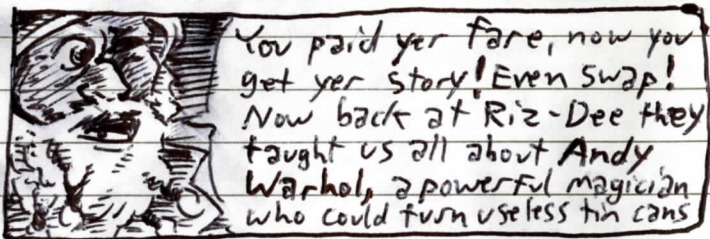 You paid yer fare, now you
get yer story! Even swap!
Now back at Riz-Dee they
taught us all about Andy
Warhol, a powerful magician
who could turn useless tin cans